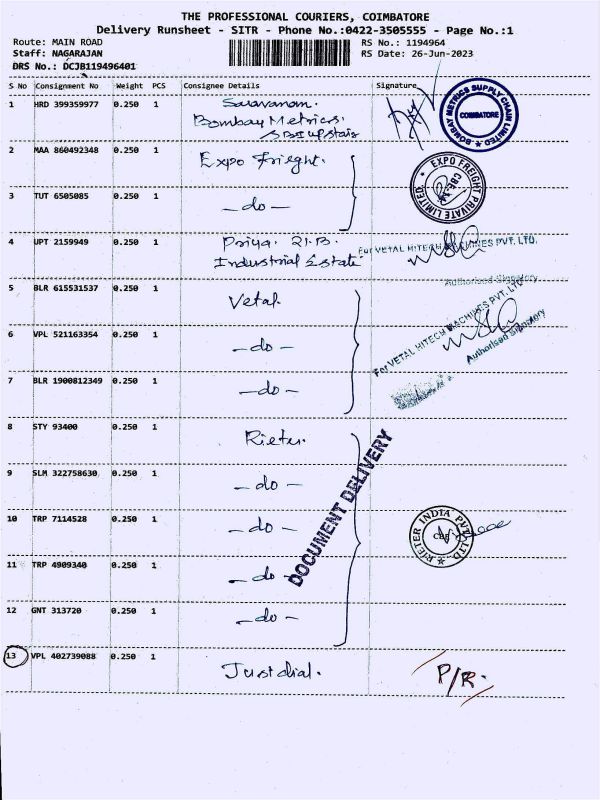 THE PROFESSIONAL COURIERS, COIMBATORE
Delivery Runsheet - SITR - Phone No.:0422-3505555 - Page No.:1
Route: MAIN ROAD
RS No.: 1194964
Staff: NAGARAJAN
RS Date: 26-Jun-2023
DRS No.: DCJB119496401
S No Consignment No Weight PCS Consignee Details Signature
1 HRD 399359977 0.250 1 Saravanan.
Bombay Metrics.
BOMBAY METRICS SUPPLY CHAIN LIMITED
COIMBATORE
2 MAA 860492348 0.250 1 Expo Frieght.
EXPO FREIGHT PRIVATE LIMITED
3 TUT 6505085 0.250 1 - do -
4 UPT 2159949 0.250 1 Priya. 21.B.
Industrial Estate
For VETAL HITECH MACHINES PVT. LTD.
Authorised Signatory
5 BLR 615531537 0.250 1 Vetal.
For VETAL HITECH MACHINES PVT. LTD
Authorised Signatory
6 VPL 521163354 0.250 1 - do -
7 BLR 1900812349 0.250 1 - do -
8 STY 93400 0.250 1 Rieter.
9 SLM 322758630 0.250 1 - do -
DOCUMENT DELIVERY
10 TRP 7114528 0.250 1 - do -
RIETER INDIA PVT LTD
CBE
11 TRP 4909340 0.250 1 - do -
12 GNT 313720 0.250 1 - do -
13 VPL 402739088 0.250 1 Justdial.
P/R.